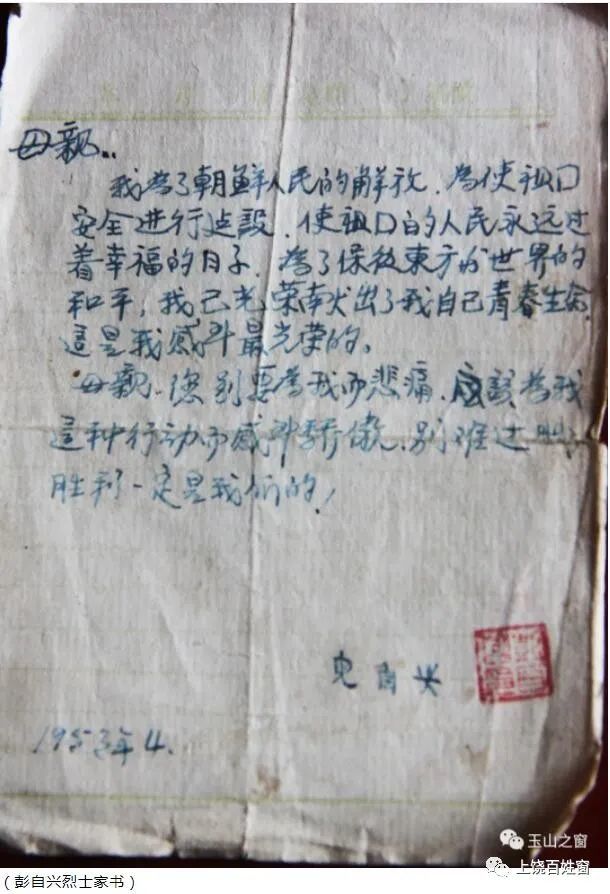 母親：
我為了朝鮮人民的解放、為使祖口
安全進行建設、使祖口的人民永远过
着幸福的日子、為了保後東方的世界的
和平，我已光荣献出了我自己青春生命
這是我感到最光荣的。
母親、您别要為我而悲痛、应該為我
這种行动而感到驕傲、别难过
胜利一定是我们的！
儿自兴
1953年4.
玉山之窗
上饶百姓窗
（彭自兴烈士家书）